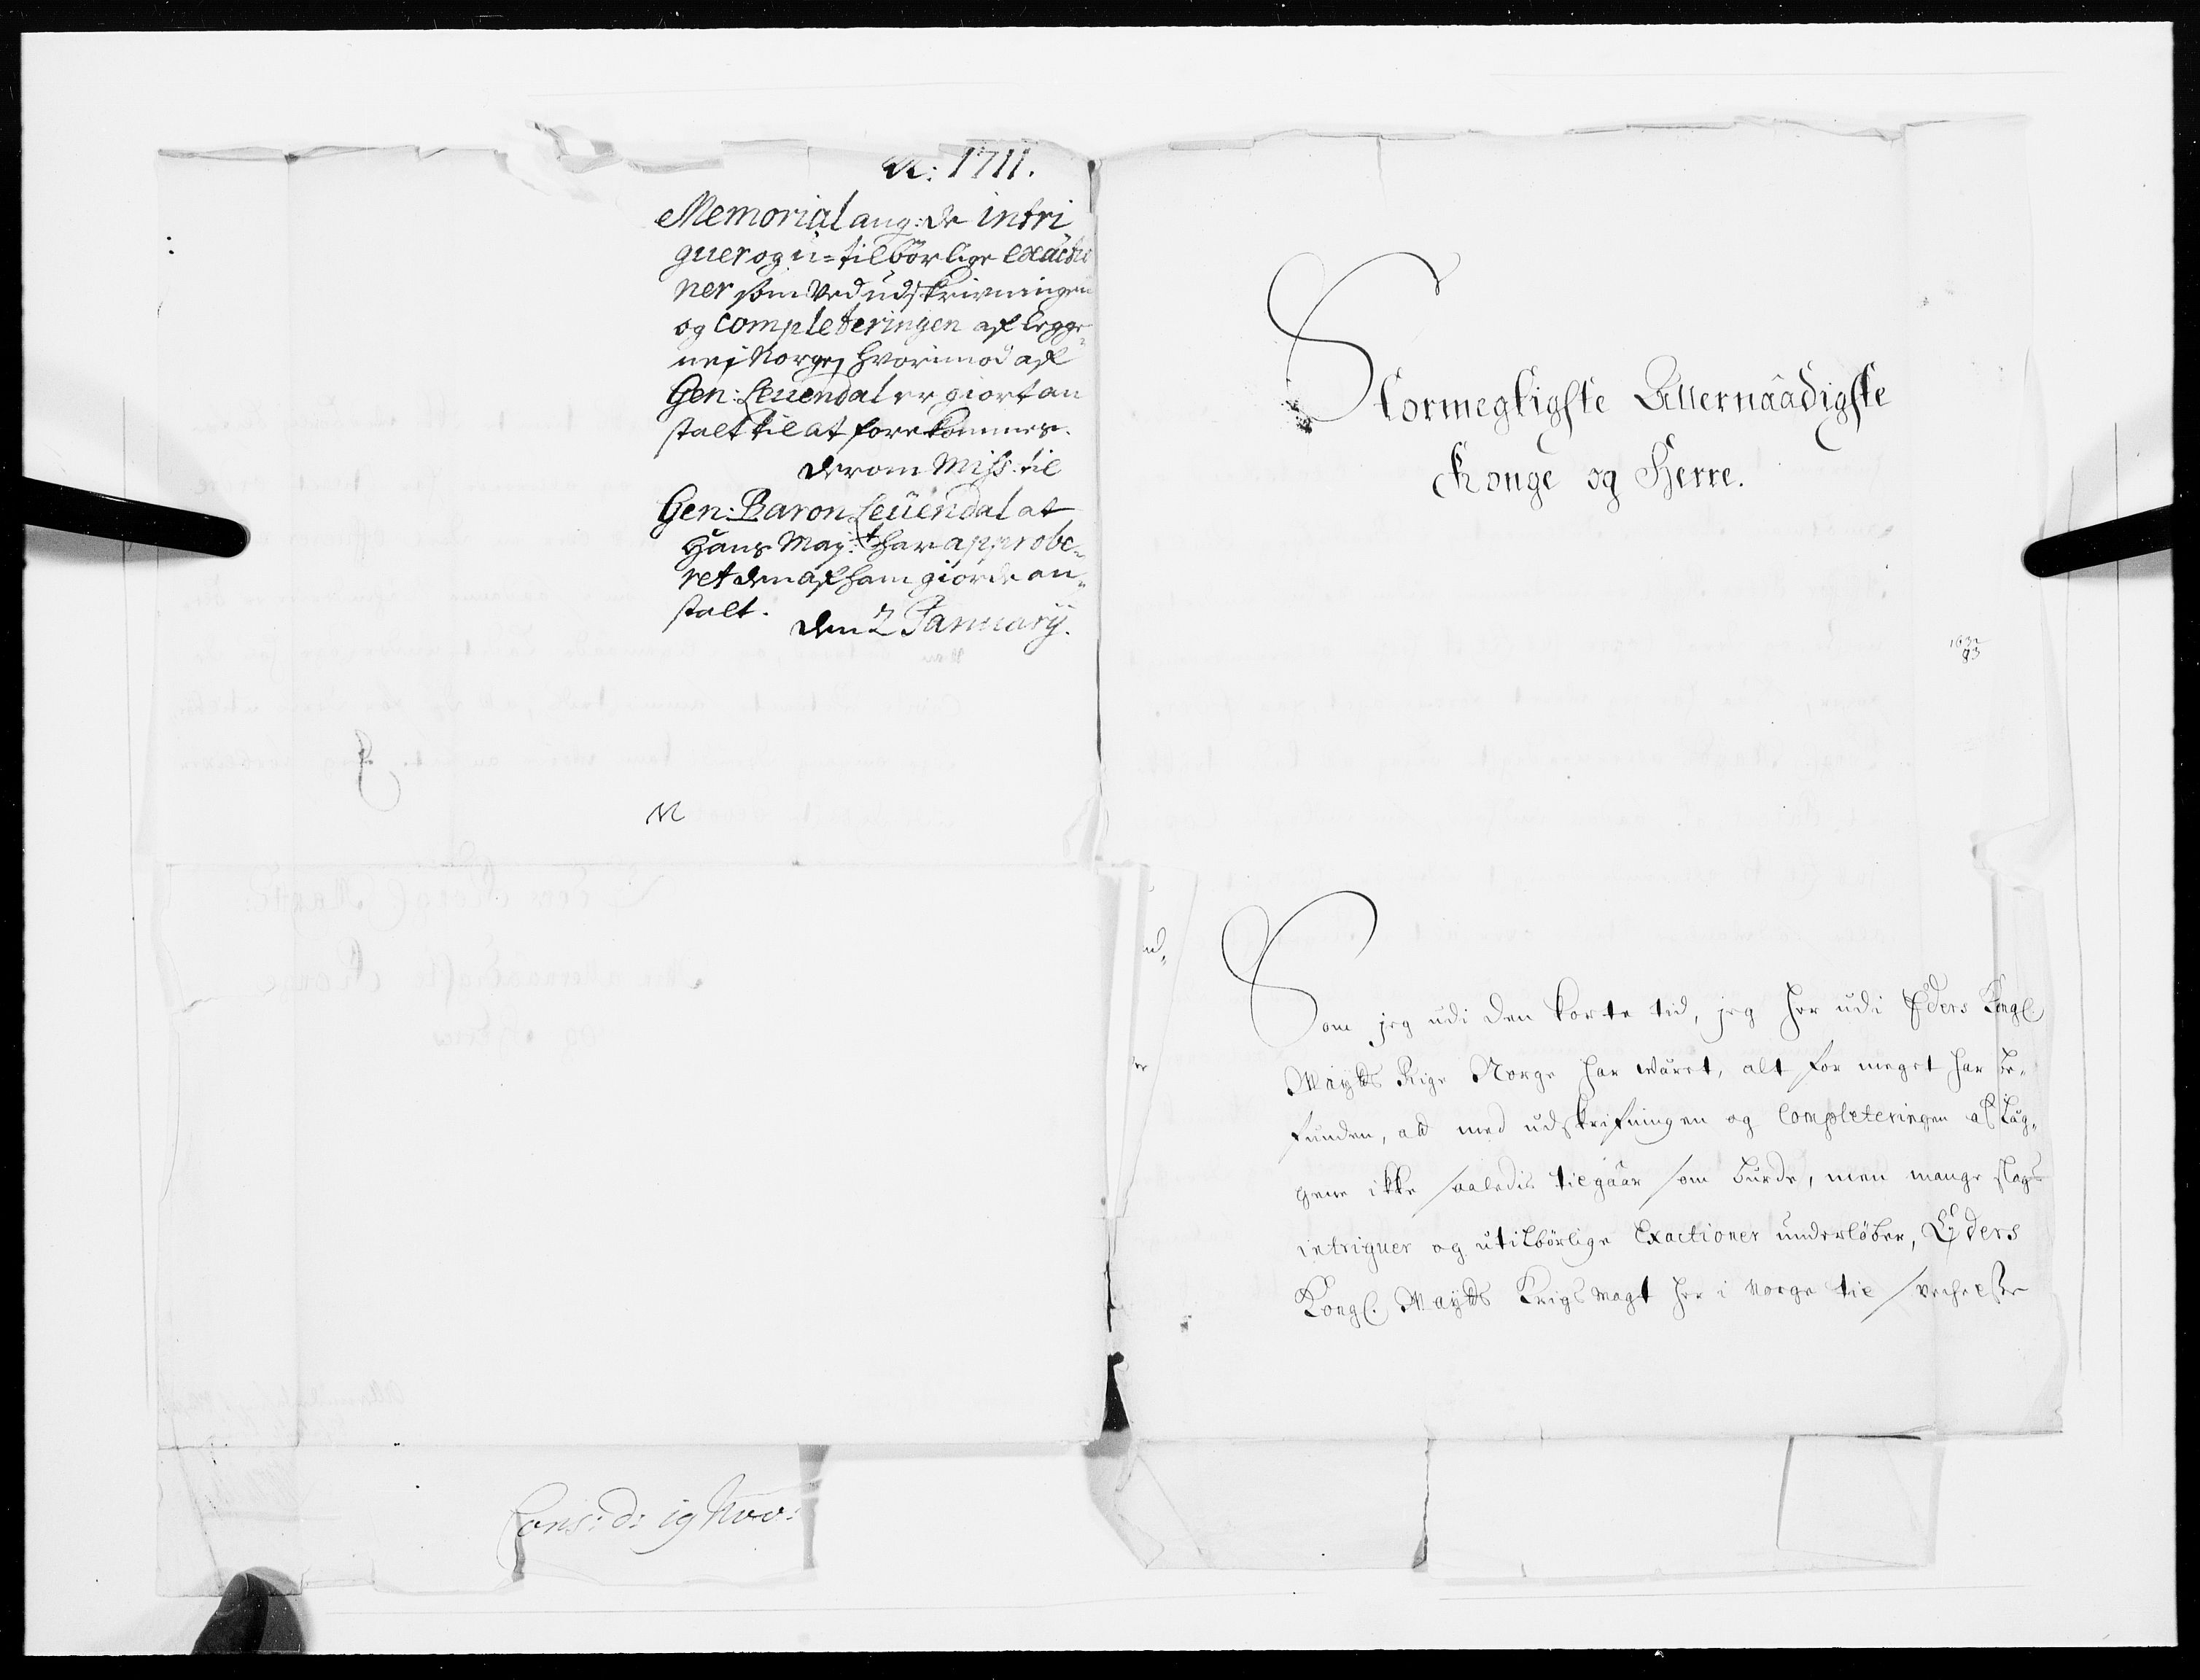 A: 1711.
Memorial ang: de intri
guer og u=tilbörlige exactio
ner som ved udskrivningen
og completeringen af legge
ne i Norge, hvorimod af
Gen: Leuendal er giort an
stalt til at forekommes.
derom Miss: til
Gen: Baron Leuendal at
Hans May:t har approbe-
ret den af ham giorde an-
stalt.
den 2 January.
M
Cons: d: 19 Nov:
Stormegtigste Allernaadigste
Konge og Herre.
1632
93
Som jeg udi den korte tid, jeg her udi Eders Kongl.
Mayts Rige Norge har wäret, alt for meget har be-
funden, ald med udskrifningen og Completeringen af Läg-
gene ikke saaledis tilgaar som burde, men mange slags
intriguer og utilbörlige Exactioner underlöber, Eders
Kongl. Mayts Krigs Magt her i Norge til svechelse